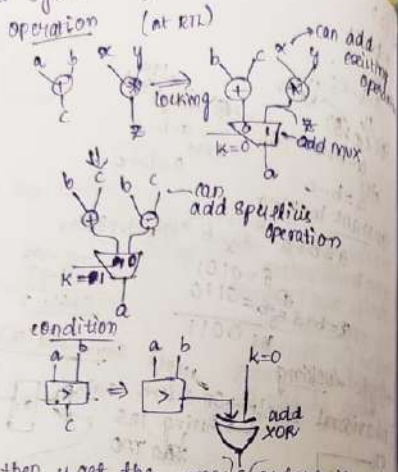 operation (at RTL)
a b
+
c
x y
*
z
locking
b c
+
x y
*
can add
existing
operation
0 1
z
K=0
add mux
a
b c b c
+
can
add spurious
operation
1 0
K=1
a
condition
a b
>
c
⇒
a b
>
k=0
add
XOR
then y get the